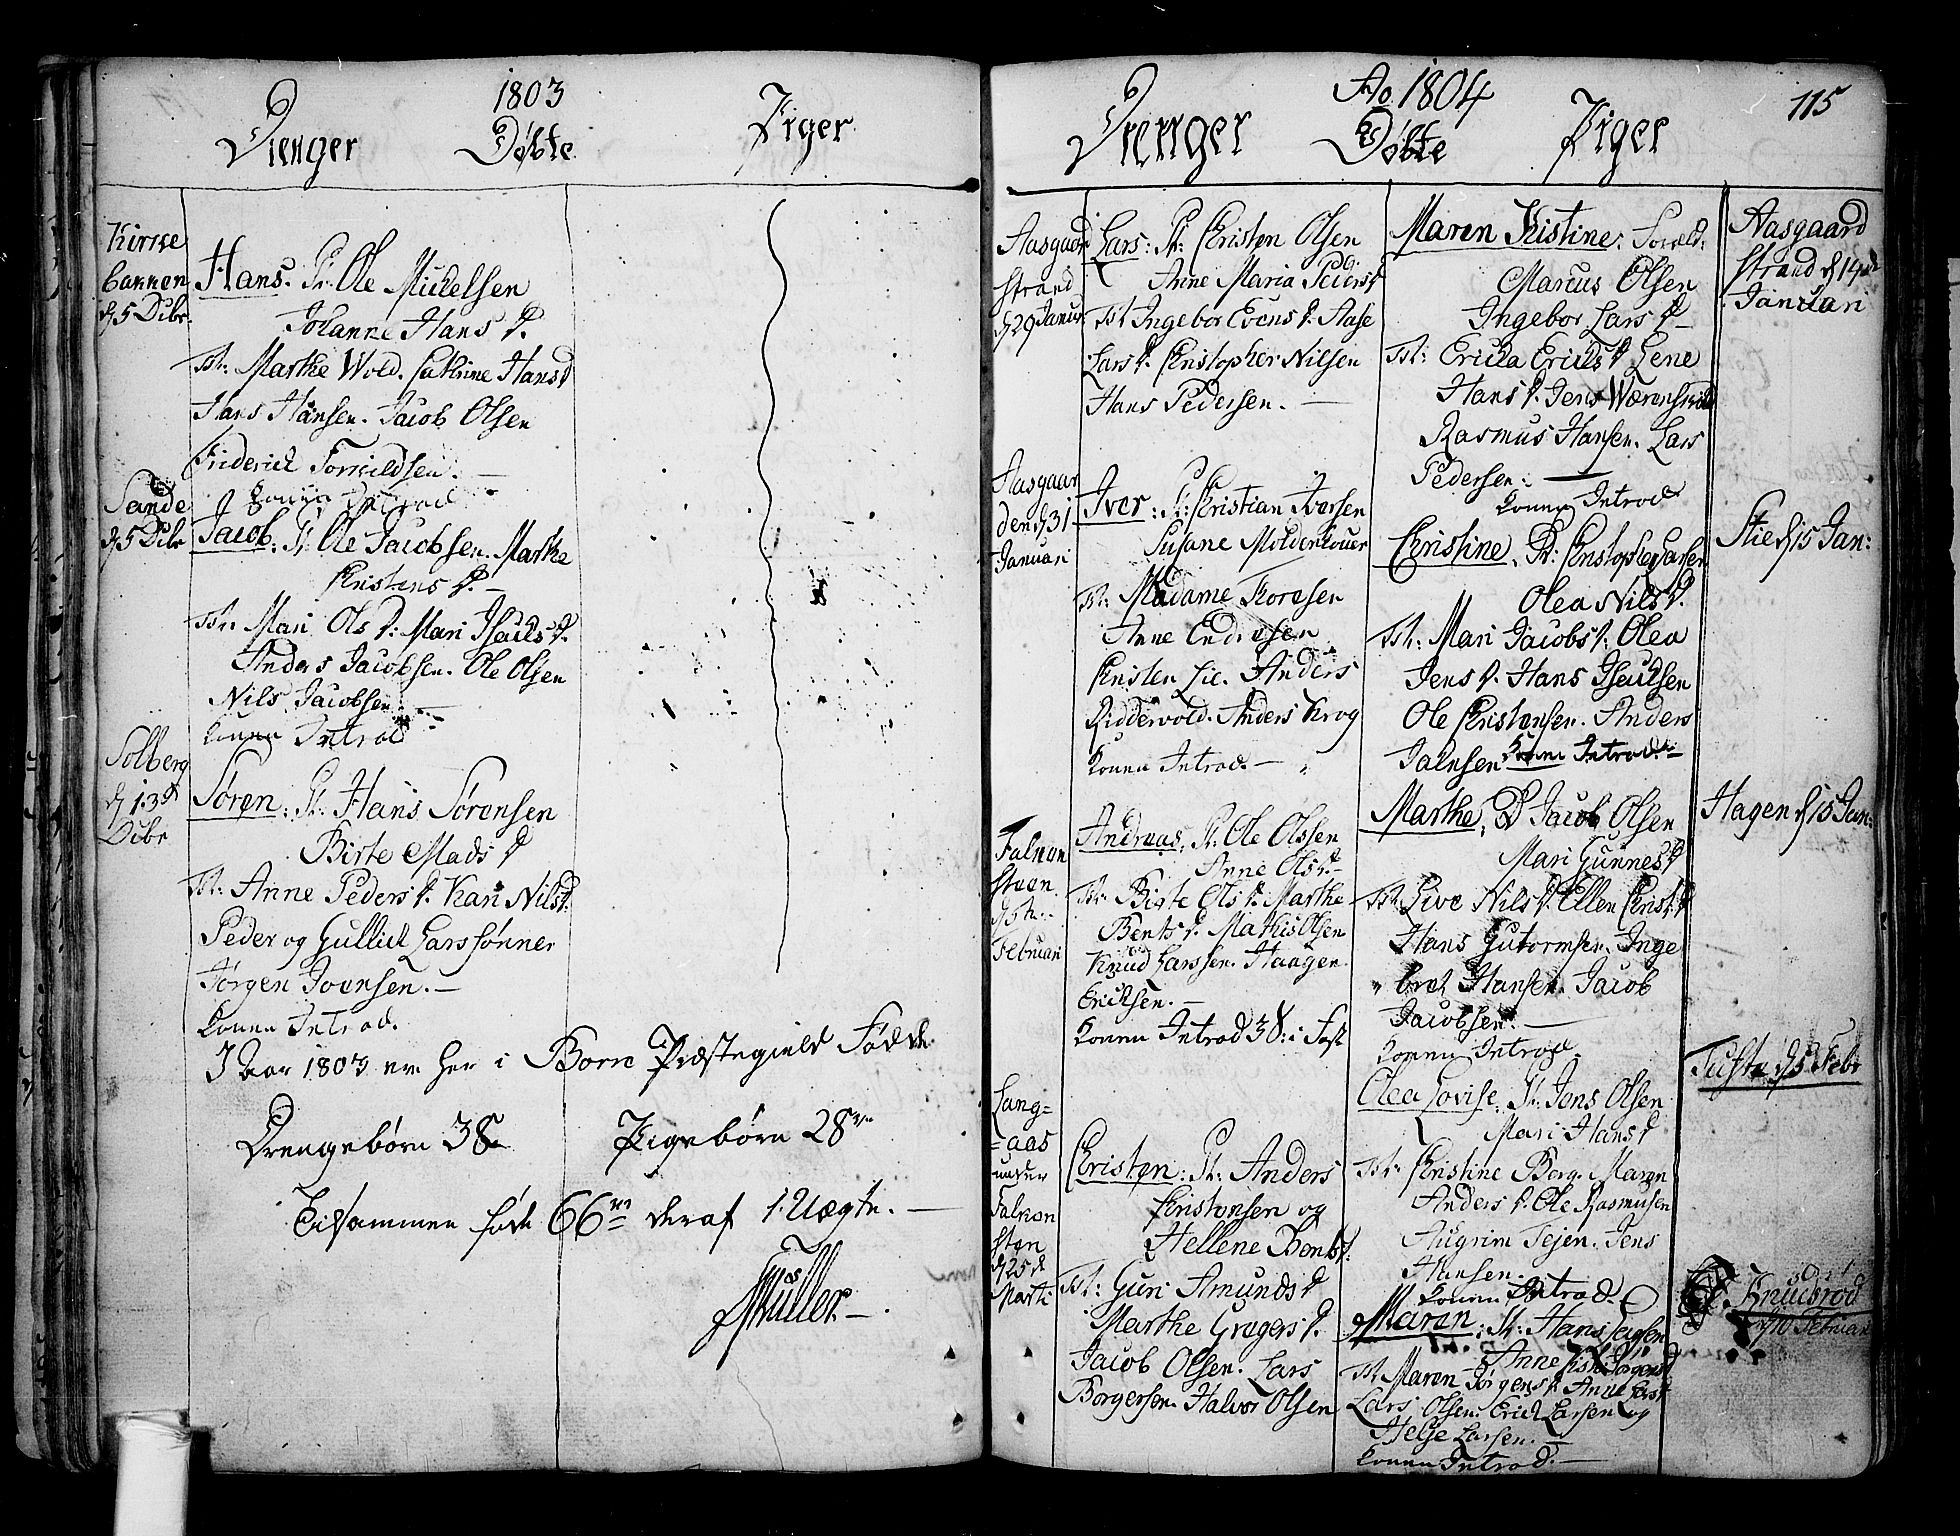 1803
Drenger Døbte Piger
Kirke
bakken
d 5 Dcbr.
Hans. Fr. Ole Mickelsen
Johanne Hans D.
Tst: Marthe Wold. Cathrine Hansd
Hans Hansen. Jacob Olsen
Friderick Torkildsen. —
konen Introd
Sande
d 5 Dcbr
Jacob. Fr. Ole Jacobsen. Marthe
Christens D. —
Tst: Mari Ols D: Mari Isacks D.
Anders Jacobsen. Ole Olsen
Nils Jacobsen. —
konen Introd
Solberg
d 13d
Dcbr
Søren: Fr. Hans Sørensen
Birte Mads D
Tst: Anne Peders D. Kari Nilsd.
Peder og Gullick Larssønner
Jørgen Ivensen. —
konen Introd.
I Aar 1803 er her i Borre Præstegield Fødde
Drengebørn 38 Pigebørn 28
Tilsammen føde 66 deraf 1. Uægte. —
Müller. —
Ao 1804
115
Drenger Døbte Piger
Aasgaard
strand
d 29 Januar
Lars: Fr: Christen Olsen
Anne Maria Pedersd
Tst Ingebor Evens D. Aase
Lars D. Christopher Nilsen
Hans Pedersen. —
Aasgaar
den d 31
Januari
Iver: Fr: Christian Iversen
Susane Moldenhouer
Tst: Madame Thoresen
Anne Endresen
Christen Lie. Anders
Riddervold. Anders Krog
konen Introd. —
Falken
steen
d 5te
Februari
Andreas, Fr. Ole Olssen
Anne Olsd. —
Tst: Birte Ols D. Marthe
Bents D. Mathis Olsen
Knud Larssen. Haagen
Ericksen. —
Konen Introd 38: i Fast
Lang=
=aas
under
Falken
sten
d 25 d
Marti
Christen: Fr: Anders
Christensen og
Hellene Bentsd:
Tst: Guri Amunds D
Marthe Gregers D.
Jacob Olsen. Lars
Borgersen. Halvor Olsen
Maren Kistine: Foræld:
Marcus Olsen
Ingebor Lars D —
Tst: Ericka Ericks D Lene
Hans D. Jens Wærenskiold
Rasmus Hansen. Lars
Pedersen: —
konen Introd
Aasgaard
strand d 14
Januari
Christine, Fr: Christopher Larsen
Olea Nils D.
Tst: Mari Jacobs D: Olea
Jens D. Hans Isacksen
Ole Christensen. Anders
Jahnsen konen Introd. —
Stie d 15 Jan:
Marthe, Fr Jacob Olsen
Mari Gunnes D
Tst Live Nils D. Ellen Christ D
Hans Gutormsen. Inge
bret Hansen. Jacob
Jacobsen. —
konen Introd.
Hagen d 15 Jan:
Olea Lovise, Fr: Jens Olsen
Mari Hans D
Tst: Christine Berg. Maren
Anders D. Ole Rasmusen
Augrim Tejen. Jens
Hansen.
konen Introd.
Tufte d 5 Febr
Maren: Fr: Hans Larsen
Anne Jørgensd
Tst Maren Jørgens D. Anne Larsd
Lars Olsen. Erick Larsen og
Helje Larsen. —
konen Introd. —
Knudsrød
d 10 Februari